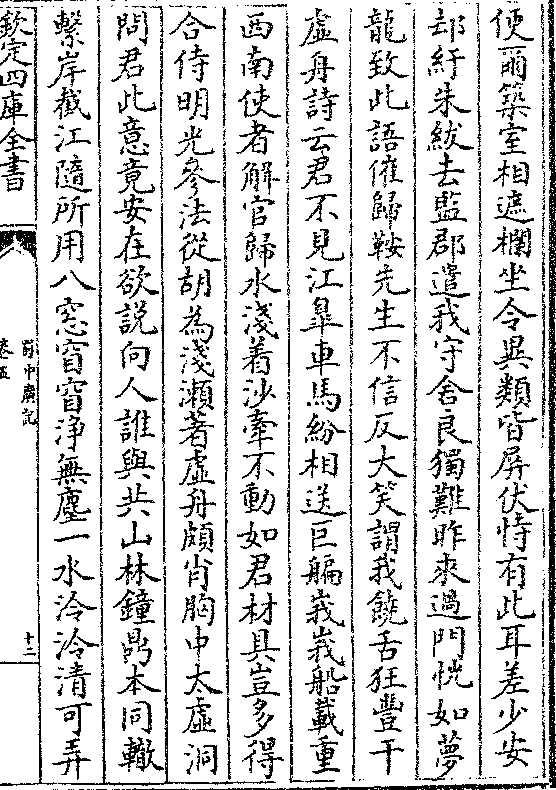 便爾築室相遮欄坐令異類皆屏伏恃有此耳差少安
却紆朱紱去監郡遣我守舍良獨難昨來過門恍如夢
龍致此語催歸鞍先生不信反大笑謂我饒舌狂豐干
虚舟詩云君不見江臯車馬紛相送巨艑峩峩船載重
西南使者解官歸水淺着沙牽不動如君材具豈多得
合侍明光參法從胡為淺瀬著虚舟頗肖胸中太虚洞
問君此意竟安在欲説向人誰與共山林鐘鼎本同轍
繫岸截江隨所用八窓窅窅浄無塵一水泠泠清可弄
欽定四庫全書
蜀中廣記
卷五
十二